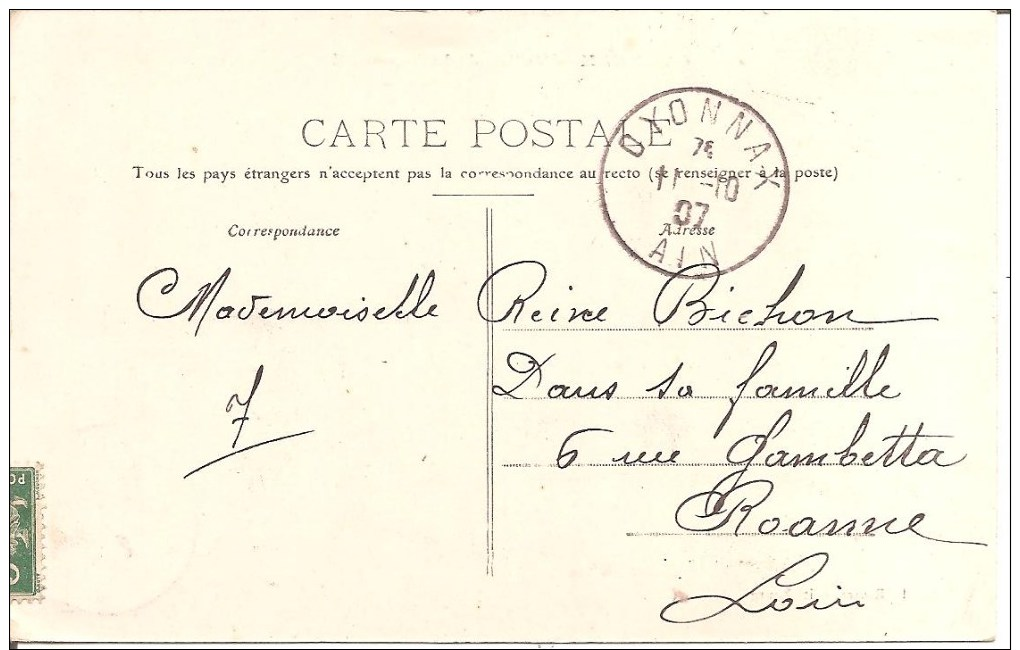 CARTE POSTALE
Tous les pays étrangers n'acceptent pas la correspondance au recto (se renseigner à la poste)
OYONNAX
11 -10
07
AIN
Correspondance
Adresse
Mademoiselle Reine Bichon
Dans sa famille
6 rue Gambetta
Roanne
Loire
7